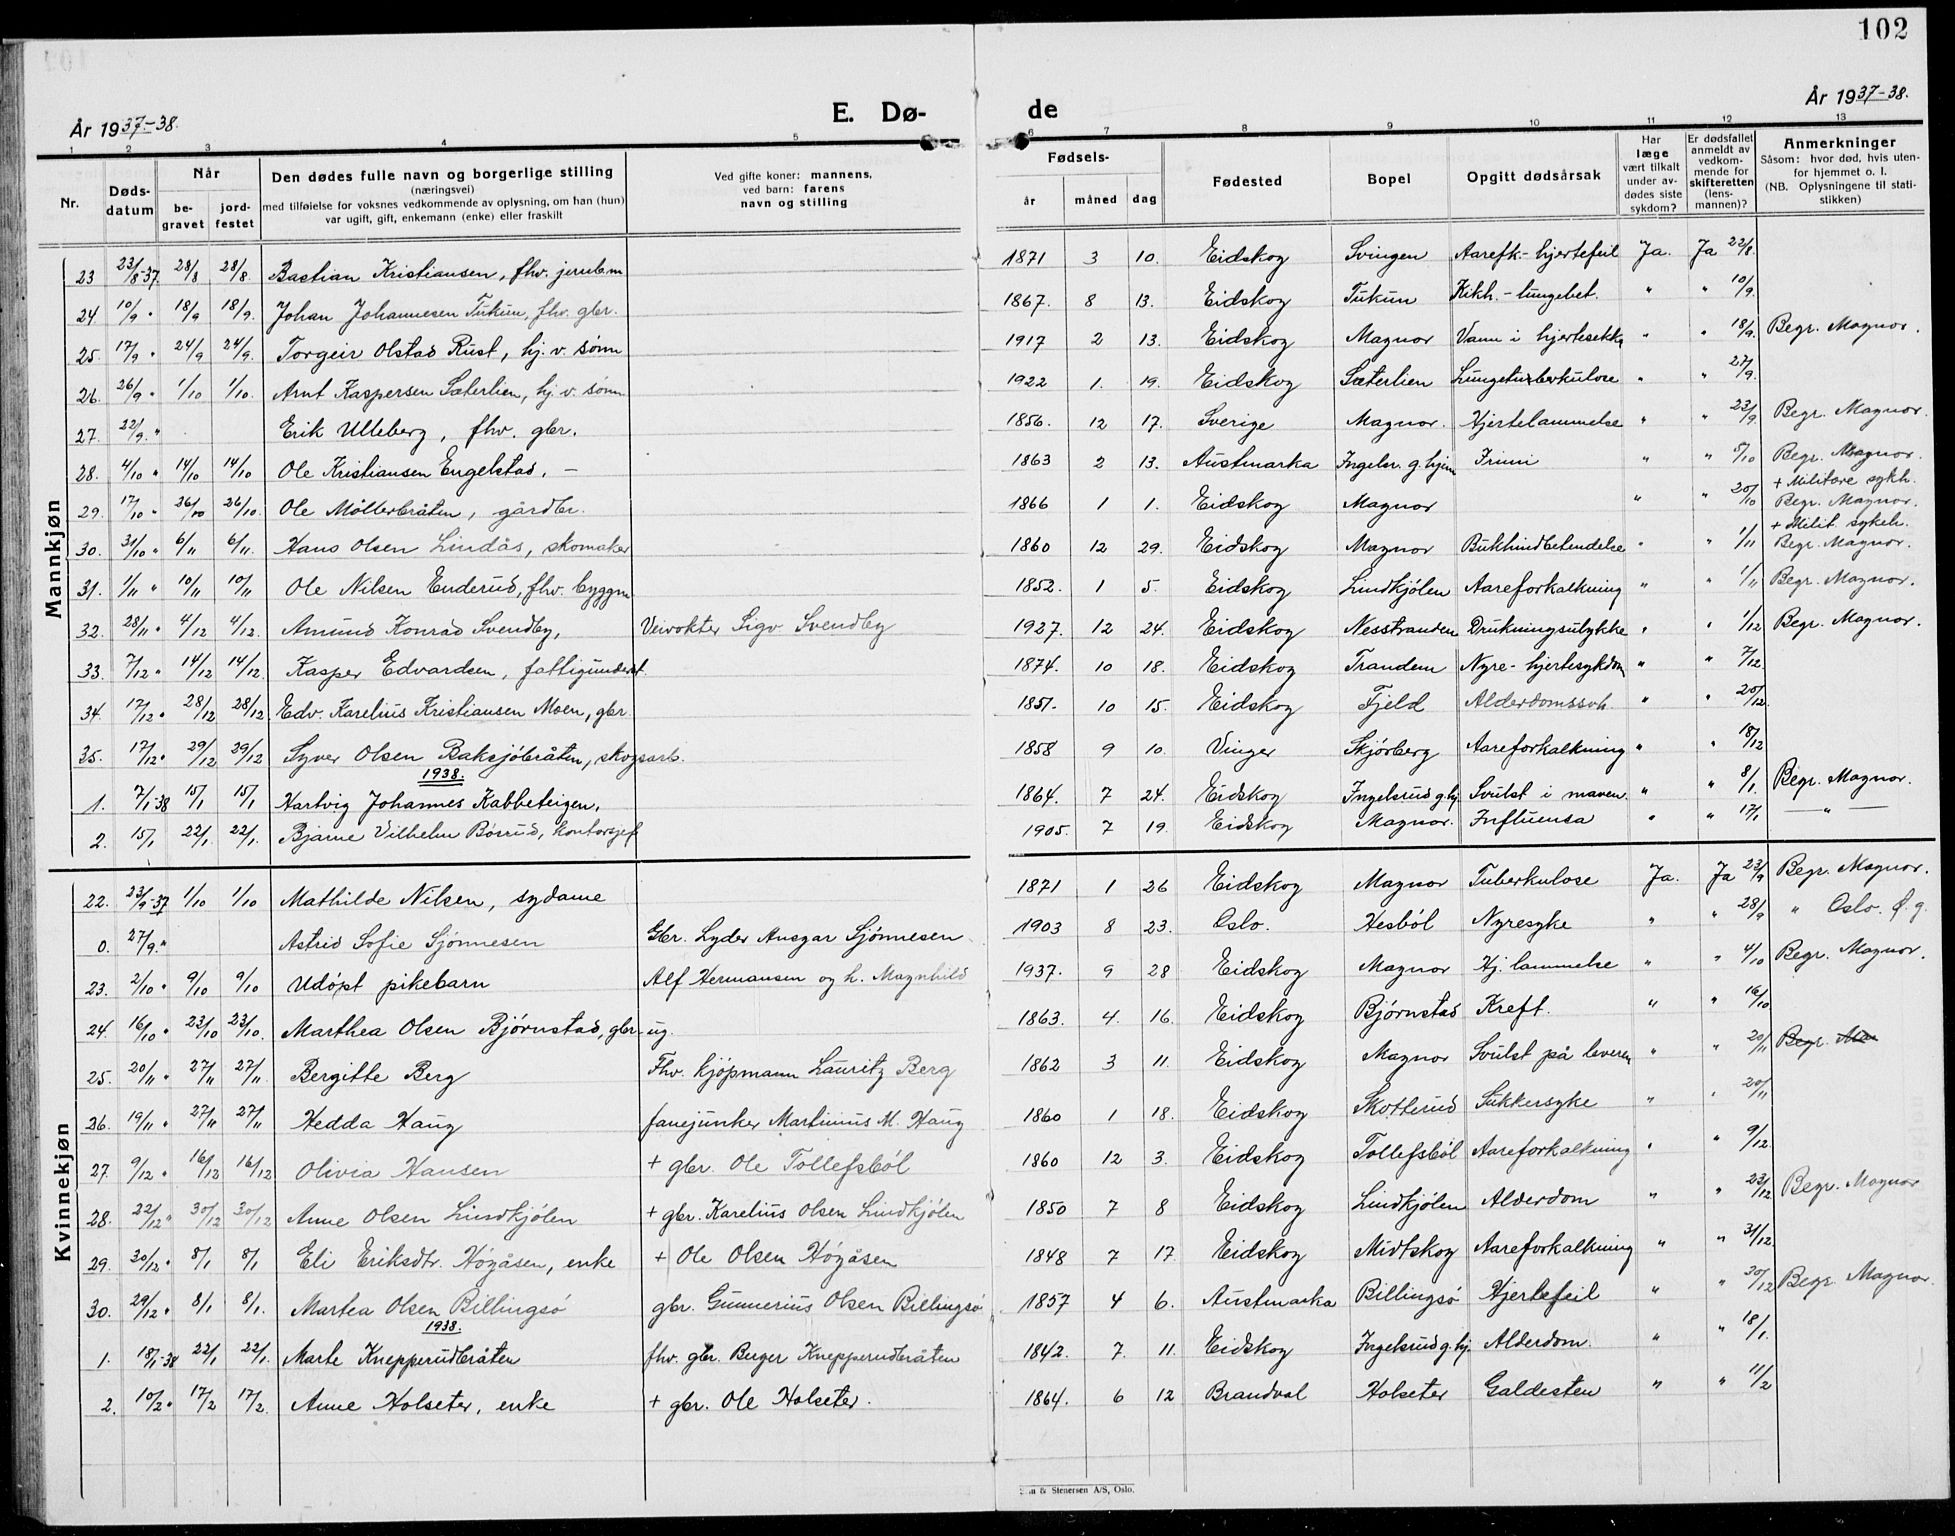 102
År 1937-38.
E. Dø- de
År 1937-38.
1 2 3 4 5 6 7 8 9 10 11 12 13
Nr.
Døds-datum
Når
be-gravet
jord-festet
Den dødes fulle navn og borgerlige stilling
(næringsvei)
med tilføielse for voksnes vedkommende av oplysning, om han (hun)
var ugift, gift, enkemann (enke) eller fraskilt
Ved gifte koner: mannens,
ved barn: farens
navn og stilling
Fødsels-
år måned dag
Fødested
Bopel
Opgitt dødsårsak
Har læge vært tilkalt under av-dødes siste sykdom?
Er dødsfallet anmeldt av vedkom-mende for skifteretten (lens-mannen)?
Anmerkninger
Såsom: hvor død, hvis uten-
for hjemmet o. l.
(NB. Oplysningene til stati-
stikken)
Mannkjøn
23 23/8-37. 28/8 28/8. Bastian Kristiansen, fhv. jernb.m 1871 3 10. Eidskog Svingen Aarefk.- hjertefeil Ja. Ja 22/8.
24 10/9 " 18/9 18/9. Johan Johannesen Tukun, fhv. gbr. 1867. 8 13. Eidskog Tukun Kikh. - lungebet. " " 10/9.
25. 17/9 " 24/9 24/9. Torgeir Olstad Rust, hj. v. sønn 1917 2 13. Eidskog Magnor Vann i hjertesekk " " 18/9. Begr. Magnor.
26. 26/9 " 1/10 1/10. Arnt Kaspersen Sæterlien, hj. v. sønn 1922 1. 19. Eidskog Sæterlien Lungetuberkulose " " 27/9.
27. 22/9. " Erik Ulleberg, fhv. gbr. 1856. 12 17. Sverige Magnor. Hjertelammelse " " 23/9 Begr. Magnor.
28. 4/10 " 14/10 14/10 Ole Kristiansen Engelstad, — 1863 2 13. Austmarka Ingelsr. g. hjem " " 5/10 Begr. Magnor.
29. 17/10 " 26/10 26/10. Ole Møllerbråten, gårdbr. 1866 1 1. Eidskog Magnor " " 20/10 + Militære sykh. Begr. Magnor.
30. 31/10 " 6/11 6/11. Hans Olsen Lindås, skomaker 1860 12 29. Eidskog Magnor Bukhindbetendelse " " 1/11 + Milit. sykeh. Begr. Magnor.
31. 1/11 " 10/11 10/11 Ole Nilsen Enderud, fhv. byggm 1852. 1 5. Eidskog Lindkjølen Aareforkalkning " " 1/11 Begr. Magnor.
32. 28/11 " 4/12 4/12. Amund Konrad Svendby, Veivokter Sigv Svendby 1927. 12 24. Eidskog Nesstranden Drukningsulykke " " 1/12 Begr. Magnor.
33. 7/12 " 14/12 14/12. Kasper Edvardsen, fattigunderst. 1874. 10 18. Eidskog Trandem Nyre- hjertesykdom " " 7/12.
34. 17/12 " 28/12 28/12 Edv. Karelius Kristiansen Moen, gbr. 1851. 10 15. Eidskog Fjeld Alderdomssvh. " " 20/12.
35. 17/12 " 29/12 29/12 Syver Olsen Baksjøbråten, skogsarb. 1858 9 10. Vinger Skjørberg Aareforkalkning " " 18/12
1938.
1. 7/1-38 15/1 15/1 Hartvig Johannes Kabbeteigen, 1864. 7 24. Eidskog Ingelsrud g.hj. Svulst i maven. " " 8/1. Begr. Magnor.
2. 15/1 22/1. 22/1. Bjarne Vilhelm Børrud, kontorsjef 1905. 7 19. Eidskog Magnor. Influensa " " 17/1 — " —
Kvinnekjøn
22. 23/9-37 1/10 1/10 Mathilde Nilsen, sydame 1871 1 26 Eidskog Magnor Tuberkulose Ja. Ja 23/9 Begr. Magnor.
0. 27/9. " Astrid Sofie Sjønnesen Gbr. Lyder Ansgar Sjønnesen 1903 8 23. Oslo. Hesbøl Nyresyke " " 28/9 " Oslo. Ø. g.
23. 2/10 " 9/10 9/10 Udøpt pikebarn Alf Hermansen og h. Magnhild 1937. 9 28 Eidskog Magnor Hj. lammelse " " 4/10 Begr. Magnor.
24. 16/10 " 23/10 23/10. Marthea Olsen Bjørnstad, gbr - ug. 1863. 4. 16. Eidskog Bjørnstad Kreft. " " 16/10
25. 20/11 " 27/11 27/11. Bergitte Berg Fhv. kjøpmann Lauritz Berg 1862 3 11. Eidskog Magnor Svulst på leveren " " 20/11 Begr. Ma
26. 19/11 " 27/11 27/11 Hedda Haug fanejunker Martinius M. Haug 1860 1 18. Eidskog Skotterud Sukkersyke " " 20/11
27. 9/12 " 16/12 16/12 Olivia Hansen + gbr. Ole Tollefsbøl 1860 12 3. Eidskog Tollefsbøl Aareforkalkning " " 9/12.
28. 22/12 " 30/12 30/12 Anne Olsen Lindkjølen + gbr. Karelius Olsen Lindkjølen 1850 7 8 Eidskog Lindkjølen Alderdom " " 23/12 Begr. Magnor
29. 30/12 " 8/1 8/1 Eli Eriksdtr. Høgåsen, enke + Ole Olsen Høgåsen 1848 7 17. Eidskog Midtskog Aareforkalkning " " 31/12.
30. 29/12 " 8/1 8/1. Martea Olsen Billingsø gbr. Gunnerius Olsen Billingsø 1857 4 6. Austmarka Billingsø Hjertefeil " " 30/12 Begr. Magnor.
1938.
1. 18/1-38 22/1 22/1. Marte Knepperudbråten fhv. gbr. Berger Knepperudbråten 1842. 7. 11. Eidskog Ingelsrud g.hj. Alderdom. " " 18/1.
2. 10/2 " 17/2 17/2. Anne Holseter, enke + gbr. Ole Holseter. 1864. 6 12 Brandval Holseter Galdesten " " 11/2
& Stenersen A/S, Oslo.